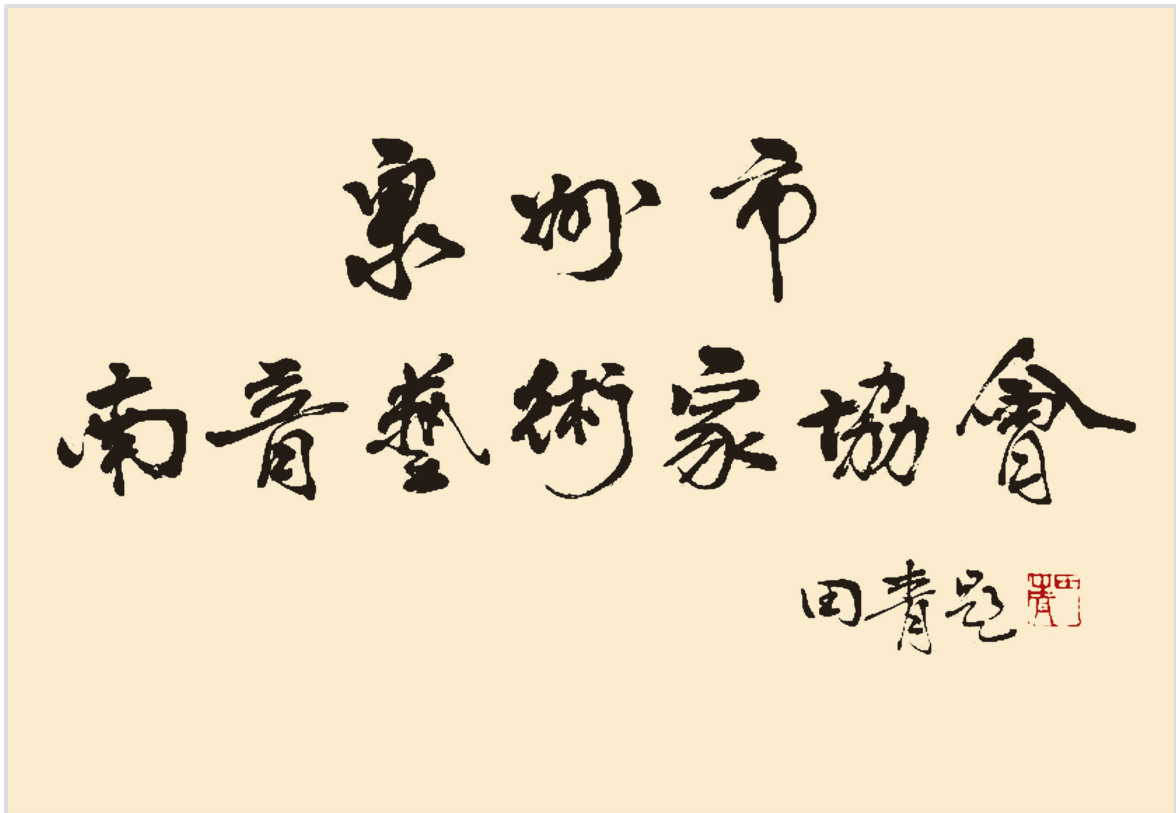 泉州市
南音藝術家協會
田青題